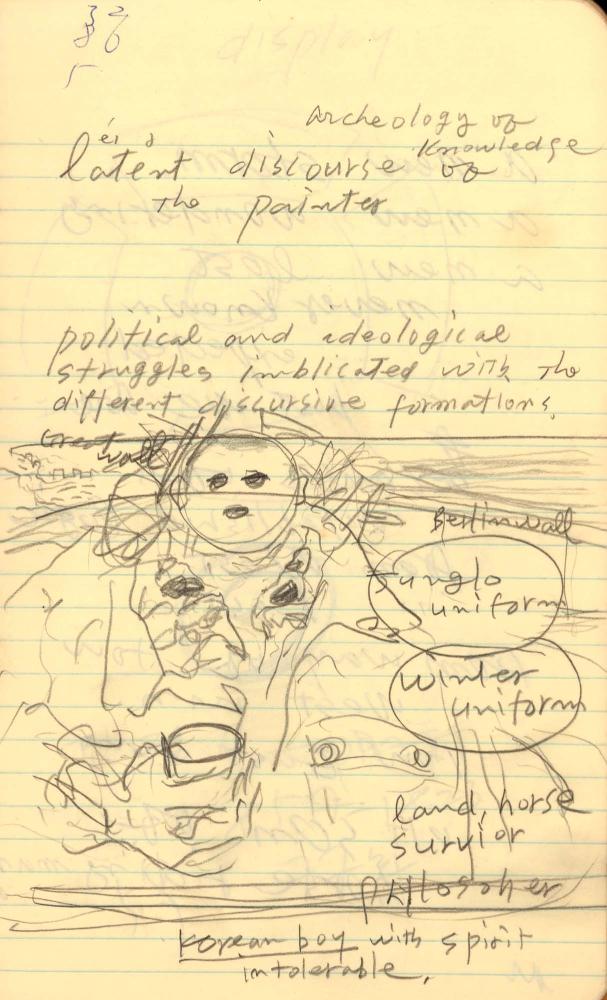 Archeology of
Knowledge
latent discourse of
The painter
political and adeological
struggles imblicated with the
different discursive formations.
Great
wall
Berlin wall
Junglo
uniform
winter
uniform
land, horse
survior
philosoher
Korean boy with spirit
intolerable.